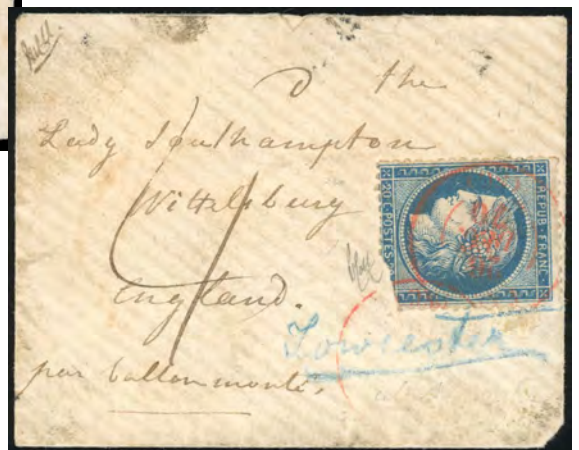 the
Lady Southampton
Wittlebury
England.
Towcester
par ballon monté,
20 C POSTES
REPUB. FRANC.